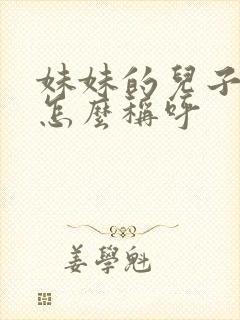 妹妹的兒子
怎麼稱呼
姜學魁